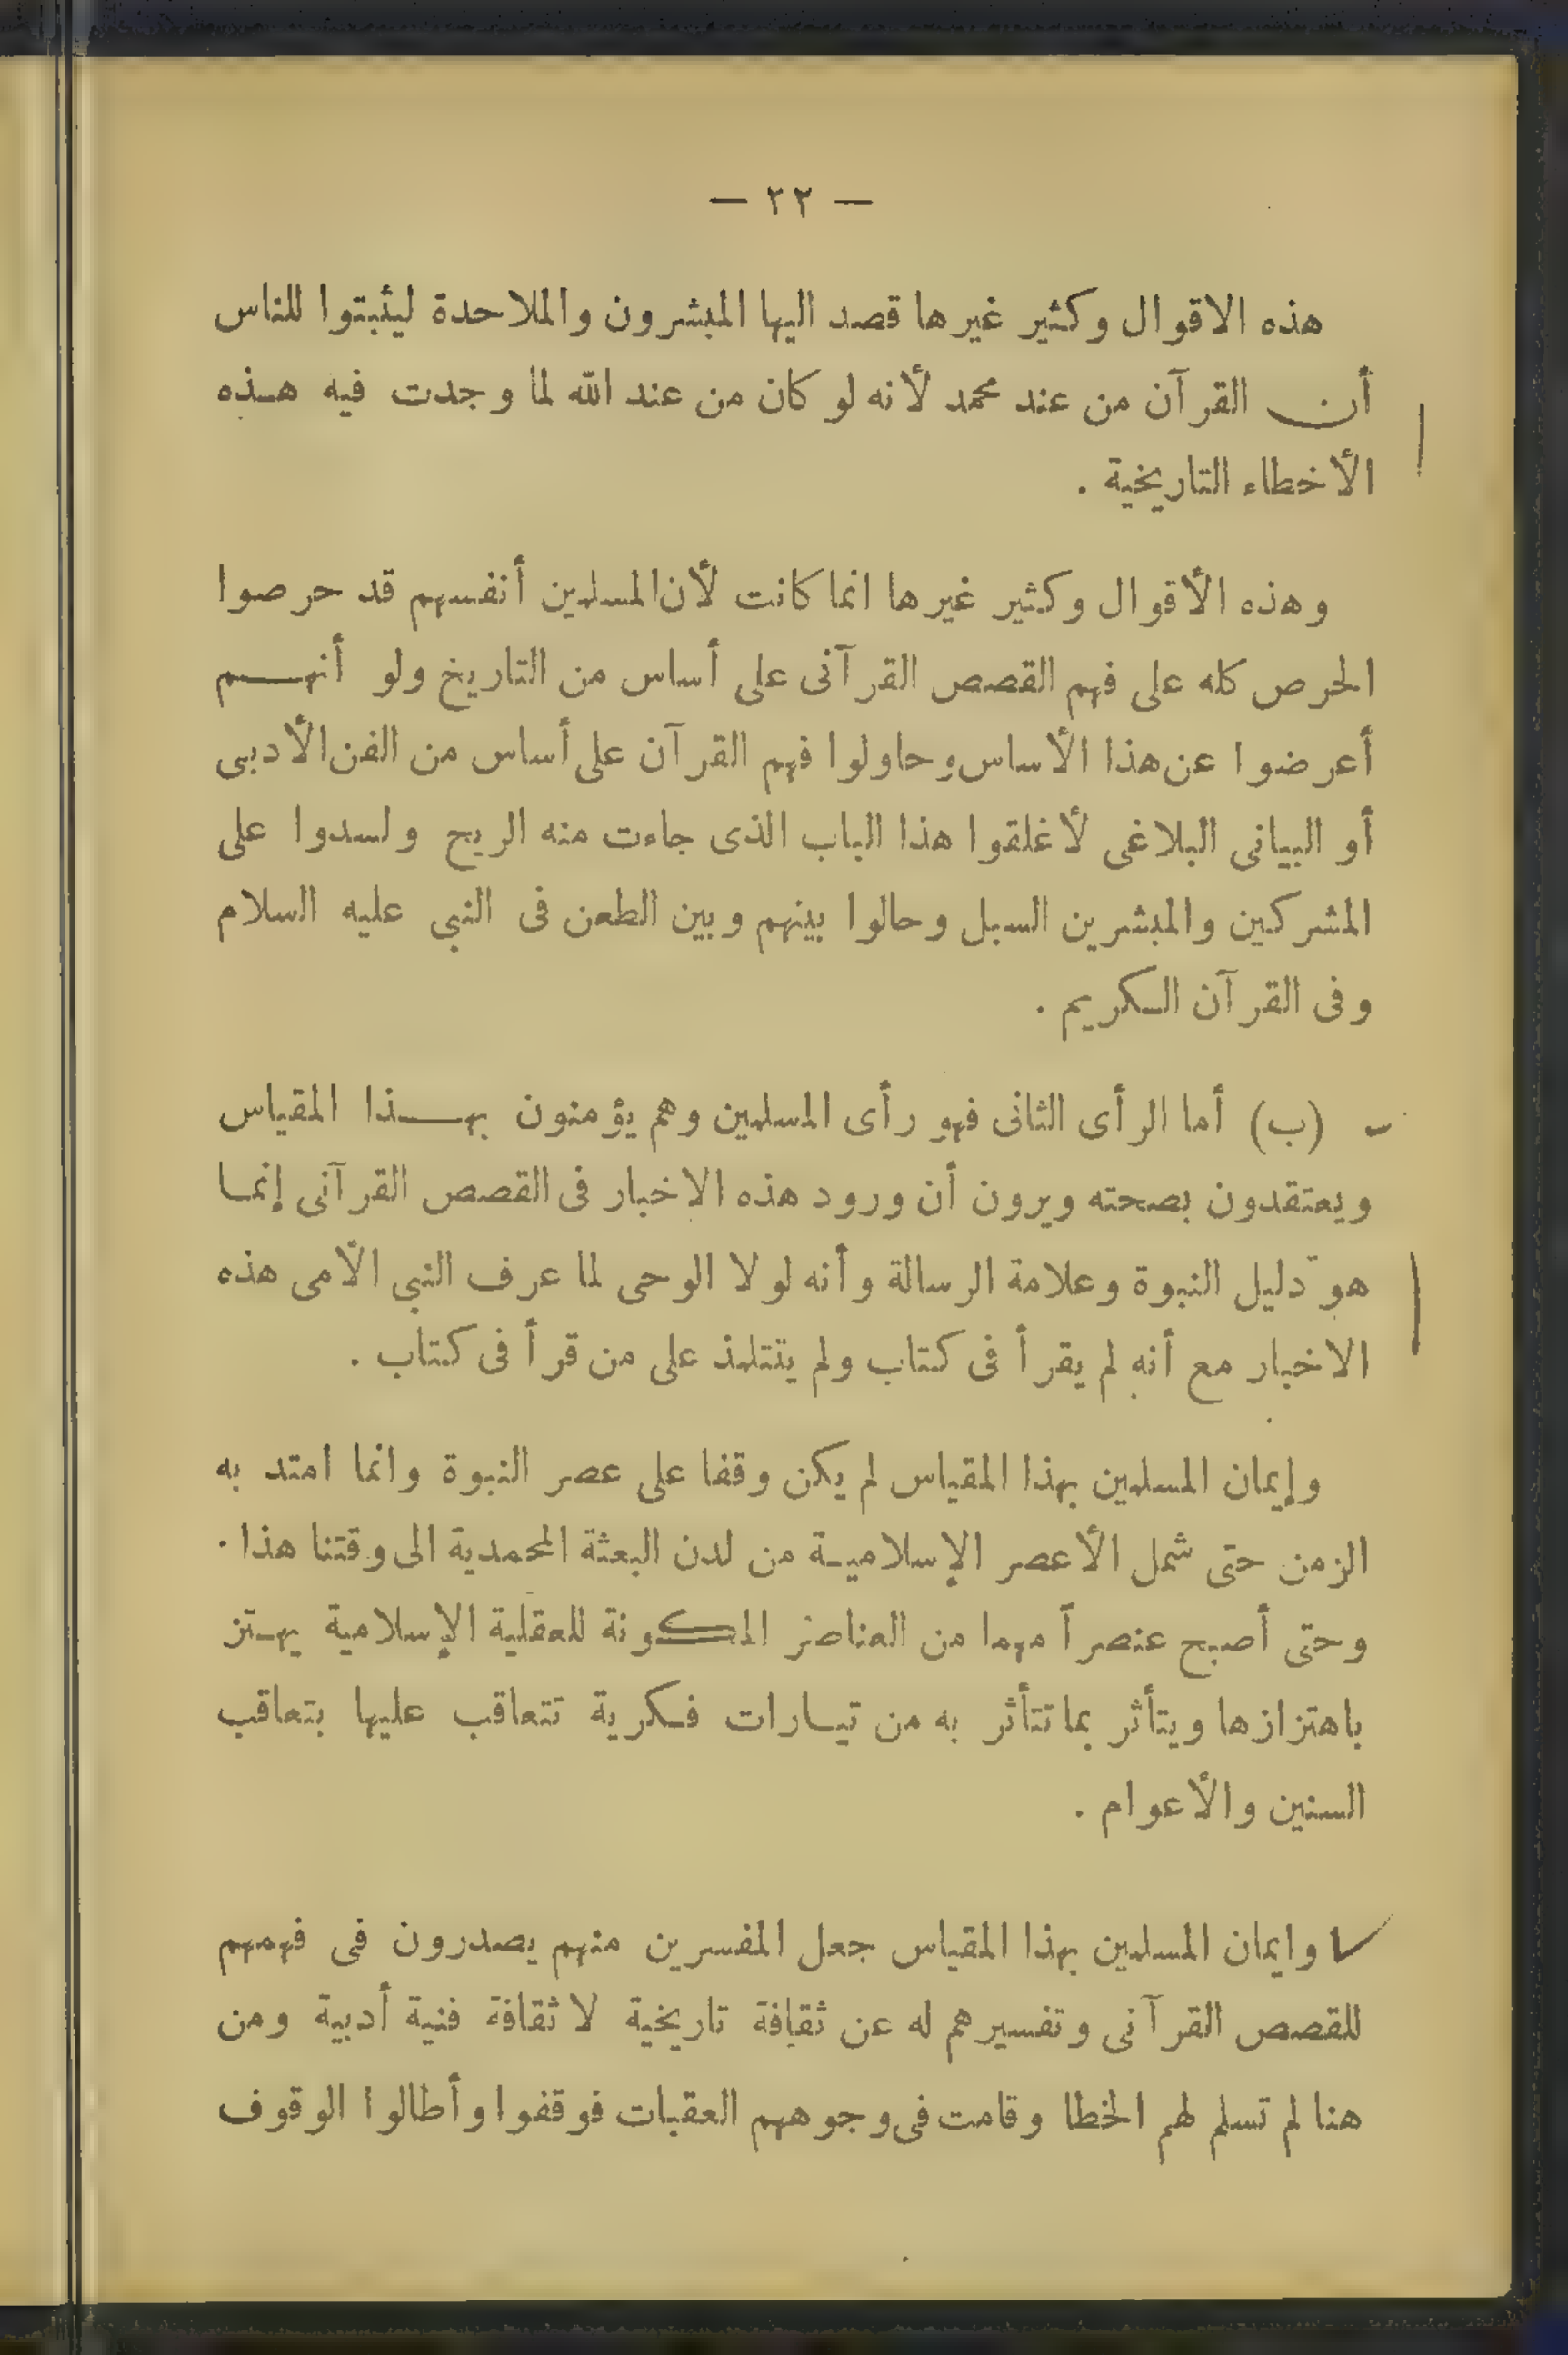 — ٢٢ —
هذه الاقوال وكثير غيرها قصد اليها المبشرون والملاحدة ليثبتوا للناس
أن القرآن من عند محمد لأنه لو كان من عند الله لما وجدت فيه هذه
الأخطاء التاريخية .
وهذه الأقوال وكثير غيرها انما كانت لأن المسلمين أنفسهم قد حرصوا
الحرص كله على فهم القصص القرآنى على أساس من التاريخ ولو أنهم
أعرضوا عن هذا الأساس وحاولوا فهم القرآن على أساس من الفن الأدبى
أو البيانى البلاغى لأغلقوا هذا الباب الذى جاءت منه الريح ولسدوا على
المشركين والمبشرين السبل وحالوا بينهم وبين الطعن فى النبي عليه السلام
وفى القرآن الكريم .
(ب) أما الرأى الثانى فهو رأى المسلمين وهم يؤمنون بهذا المقياس
ويعتقدون بصحته ويرون أن ورود هذه الاخبار فى القصص القرآنى إنما
هو دليل النبوة وعلامة الرسالة وأنه لولا الوحى لما عرف النبي الأمى هذه
الاخبار مع أنه لم يقرأ فى كتاب ولم يتتلمذ على من قرأ فى كتاب .
وإيمان المسلمين بهذا المقياس لم يكن وقفا على عصر النبوة وانما امتد به
الزمن حتى شمل الأعصر الإسلامية من لدن البعثة المحمدية الى وقتنا هذا .
وحتى أصبح عنصراً مهما من العناصر المكونة للعقلية الإسلامية يهتز
باهتزازها ويتأثر بما تتأثر به من تيارات فكرية تتعاقب عليها بتعاقب
السنين والأعوام .
وايمان المسلمين بهذا المقياس جعل المفسرين منهم يصدرون فى فهمهم
للقصص القرآنى وتفسيرهم له عن ثقافة تاريخية لا ثقافة فنية أدبية ومن
هنا لم تسلم لهم الخطا وقامت فى وجوههم العقبات فوقفوا وأطالوا الوقوف